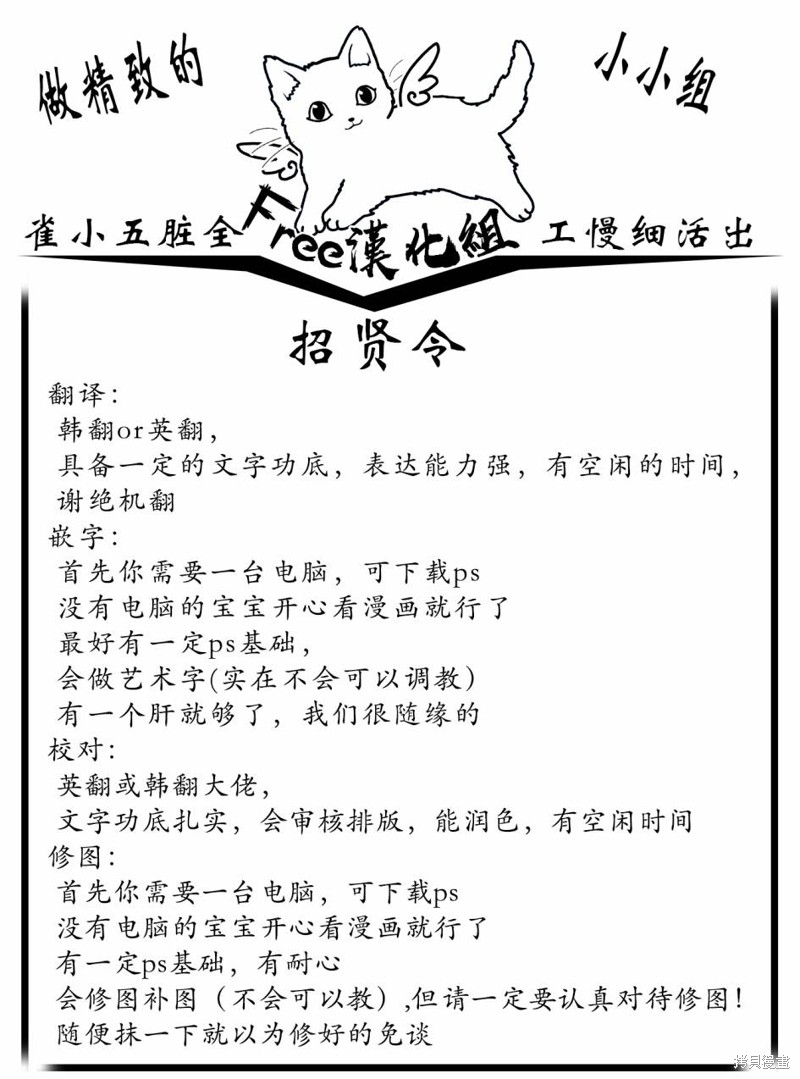 做精致的
小小组
雀小五脏全
Free漢化組
工慢细活出
招贤令
翻译：
韩翻or英翻，
具备一定的文字功底，表达能力强，有空闲的时间，
谢绝机翻
嵌字：
首先你需要一台电脑，可下载ps
没有电脑的宝宝开心看漫画就行了
最好有一定ps基础，
会做艺术字(实在不会可以调教)
有一个肝就够了，我们很随缘的
校对：
英翻或韩翻大佬，
文字功底扎实，会审核排版，能润色，有空闲时间
修图：
首先你需要一台电脑，可下载ps
没有电脑的宝宝开心看漫画就行了
有一定ps基础，有耐心
会修图补图（不会可以教）,但请一定要认真对待修图！
随便抹一下就以为修好的免谈
拷貝漫畫